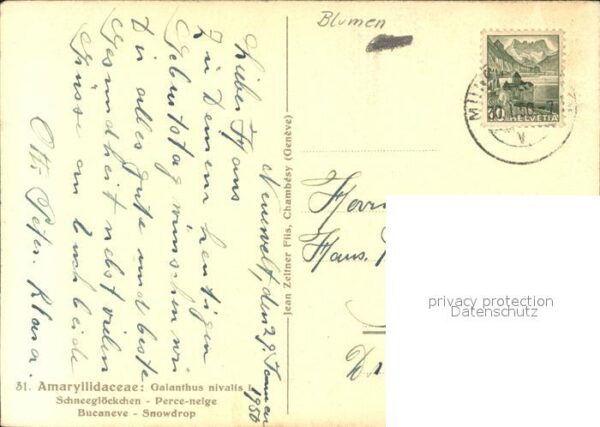 Blumen
Neuewelt, den 29. Januar 1950
Lieber Hans
Zu Deinem heutigen
Geburtstag wünschen wir
Dir alles gute und beste
Gesundheit nebst vielen
Grüsse an Euch beide
Otti. Peter. Klara.
Jean Zeltner Fils, Chambésy (Genève)
31. Amaryllidaceae: Galanthus nivalis L.
Schneeglöckchen - Perce-neige
Bucaneve - Snowdrop
10 HELVETIA
MÜN
V
Herrn
Hans.
privacy protection
Datenschutz